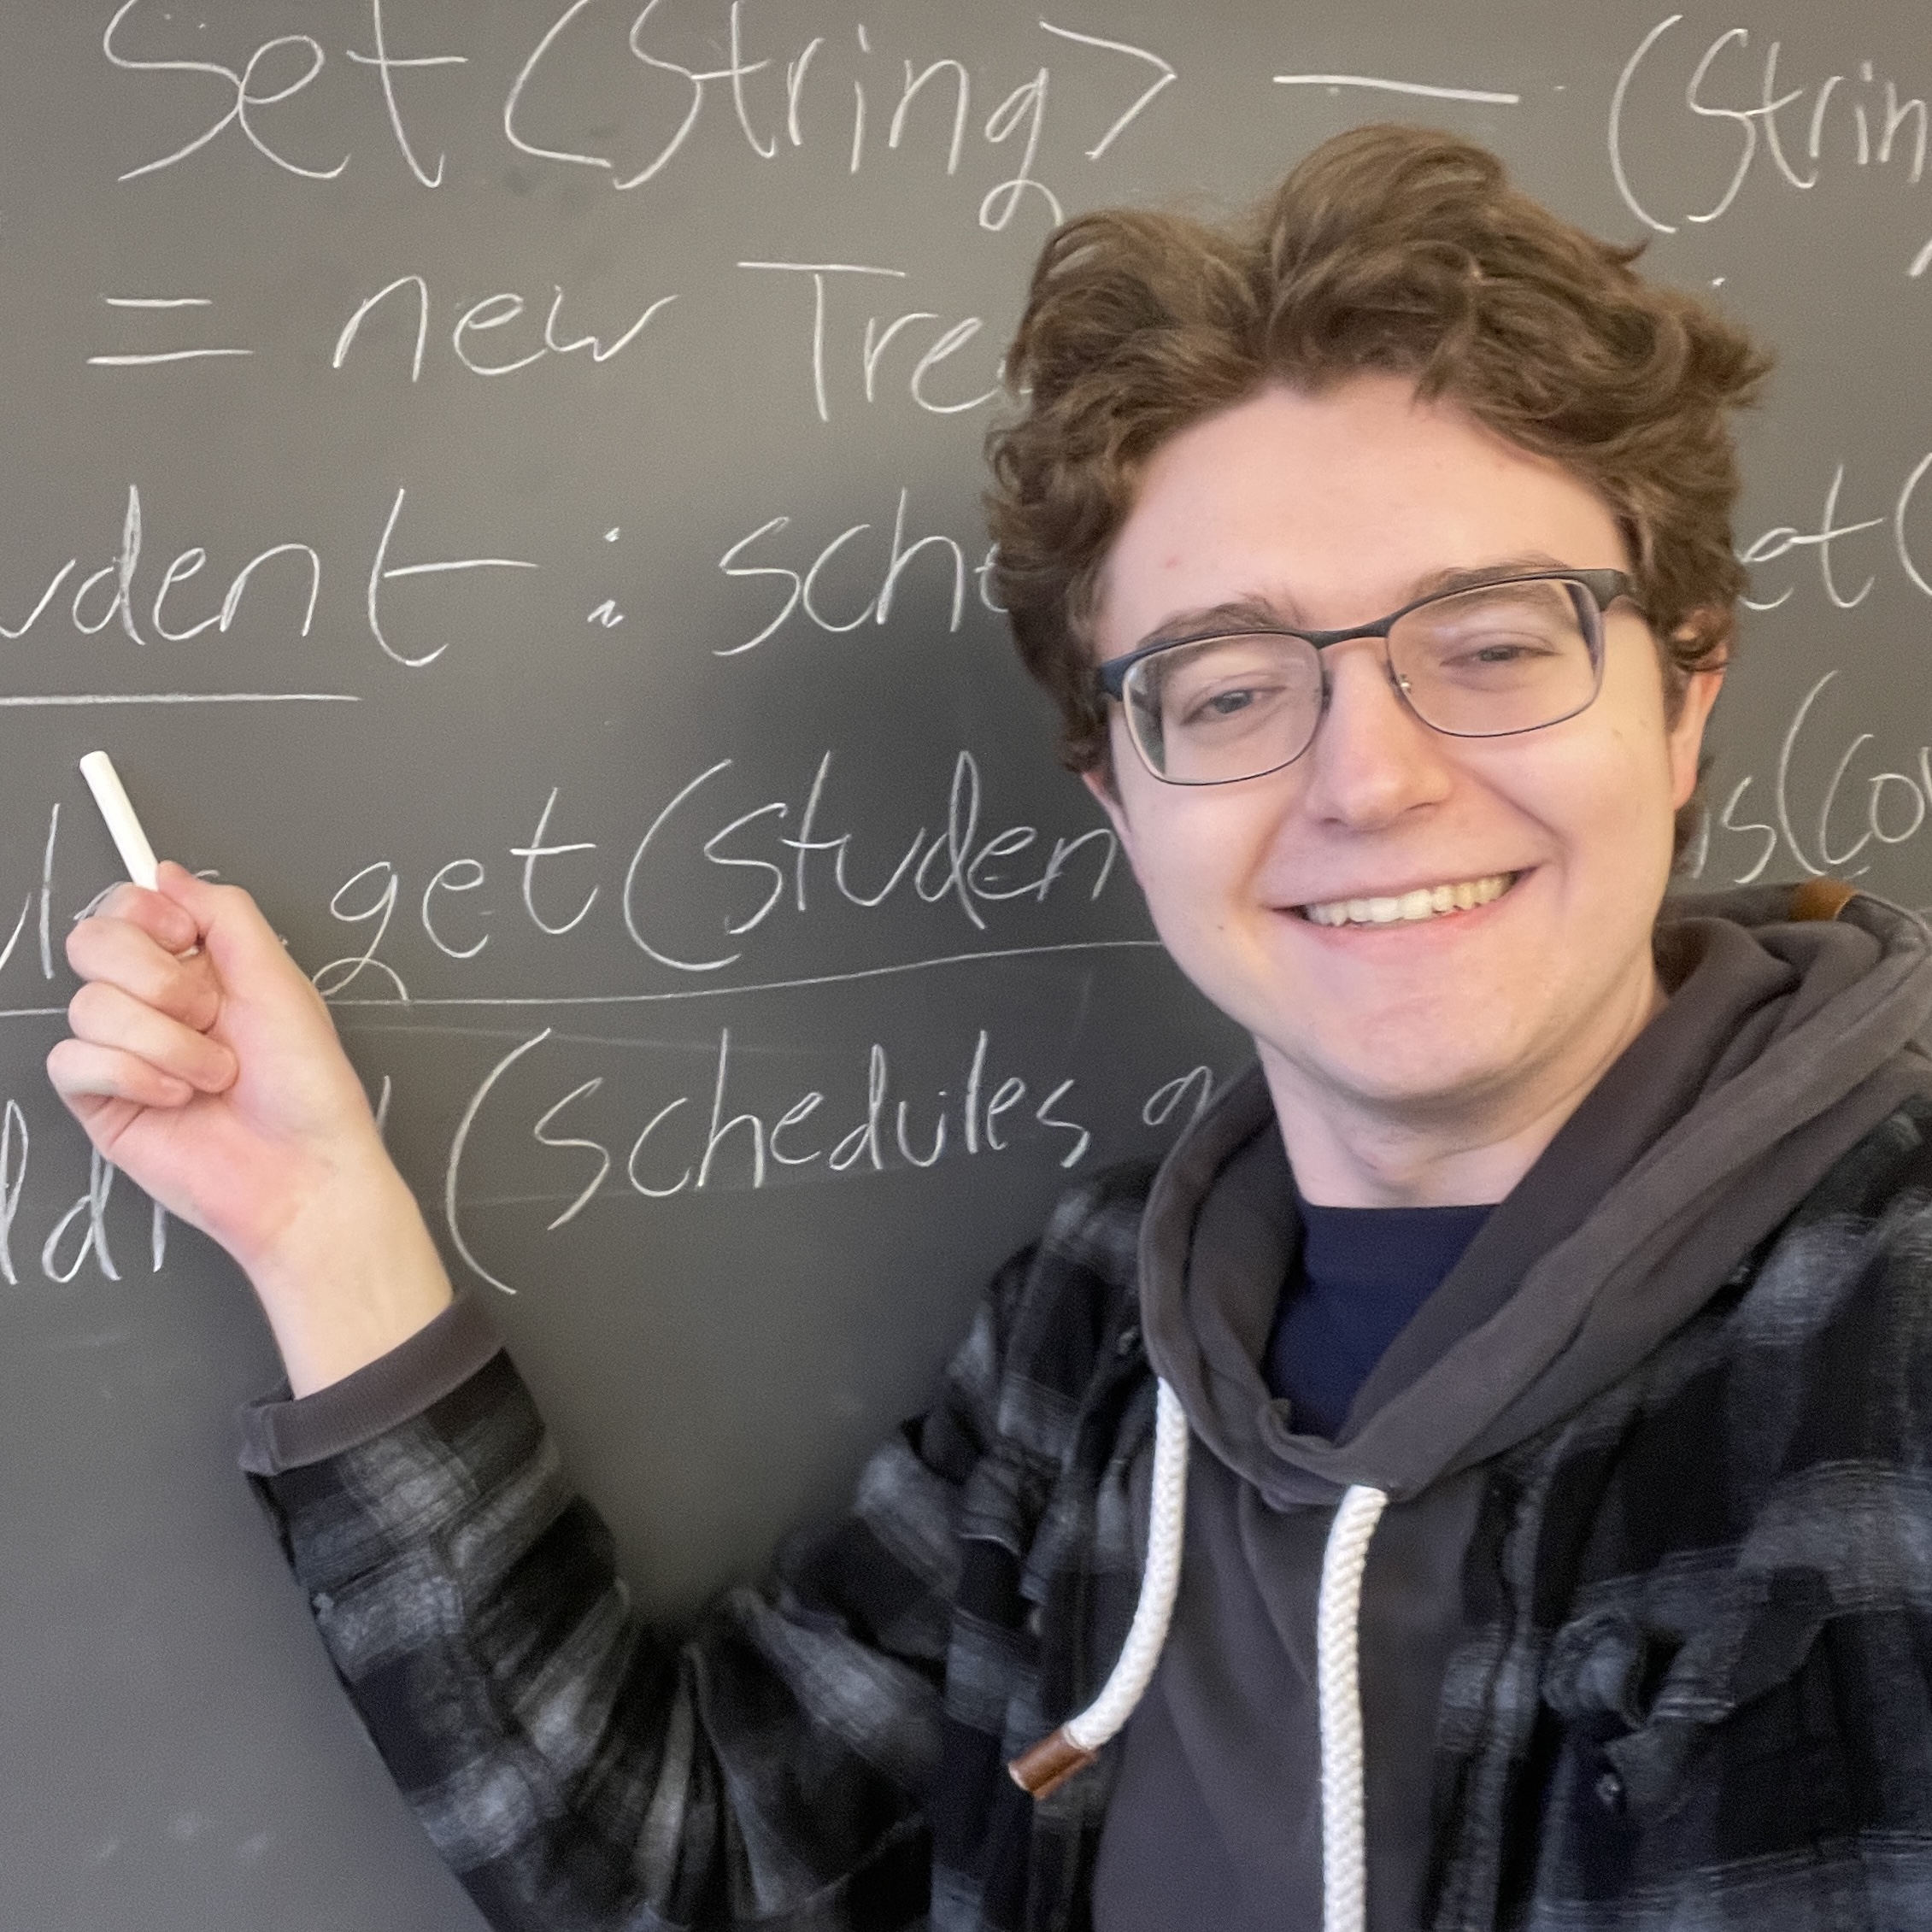 Set<String> — (Strin
= new Tre
udent : sche et(
get(studen is(co
(schedules g